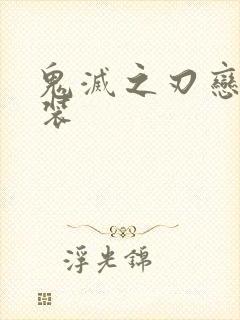 鬼滅之刃戀
裝
浮光錦